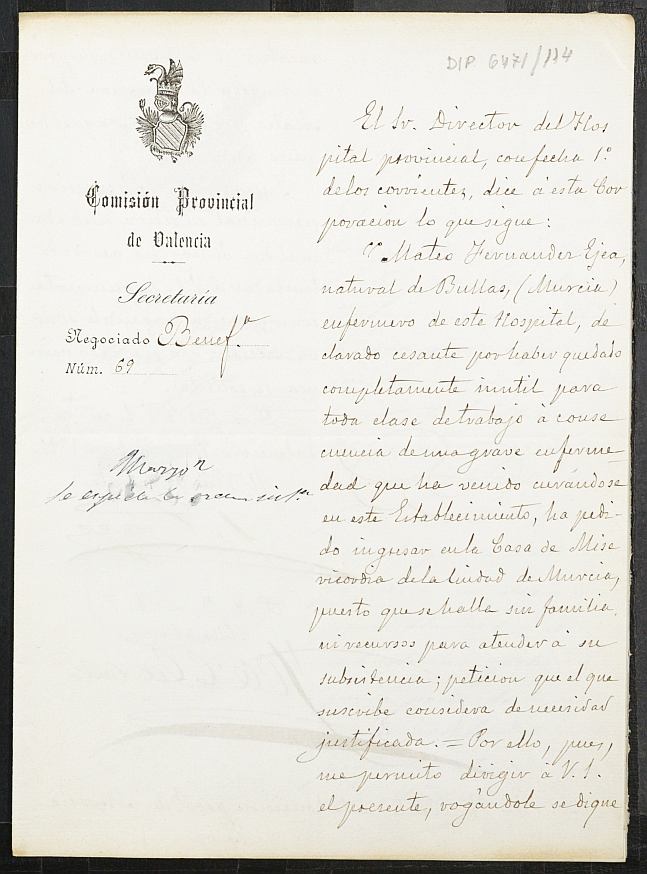 DIP 6471/114
Comisión Provincial
de Valencia
Secretaría
Negociado Benef.ª
Núm. 69
Marzo
se
El Sr. Director del Hos
pital provincial, con fecha 1.º
de los corrientes, dice á esta Cor
poracion lo que sigue:
"Mateo Fernandez Egea,
natural de Bullas, (Murcia)
enfermero de este Hospital, de
clarado cesante por haber quedado
completamente inutil para
toda clase de trabajo á conse
cuencia de una grave enferme
dad que ha venido curándose
en este Establecimiento, ha pedi-
do ingresar en la Casa de Mise
ricordia de la Ciudad de Murcia,
puesto que se halla sin familia
ni recursos para atender á su
subsistencia; peticion que el que
suscribe considera de necesidad
justificada. = Por ello, pues,
me permito dirigir á V. S.
el presente, rogándole se digne